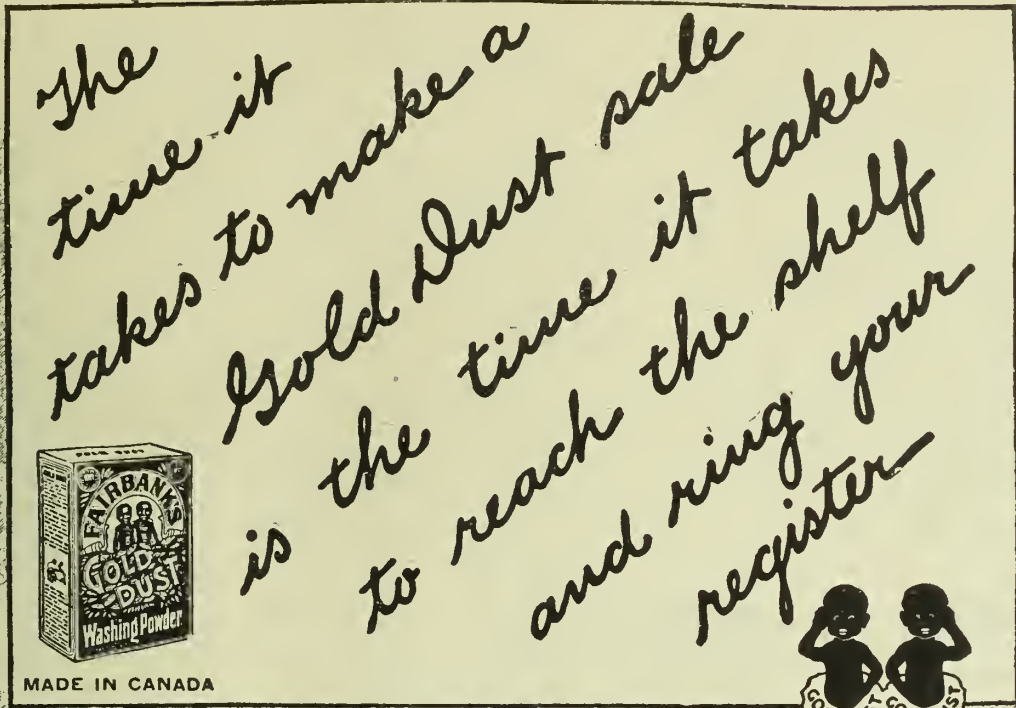 The
time it
takes to make a
Gold Dust sale
is the time it takes
to reach the shelf
and ring your
register
GOLD DUST
FAIRBANK'S
GOLD
DUST
Washing Powder
MADE IN CANADA